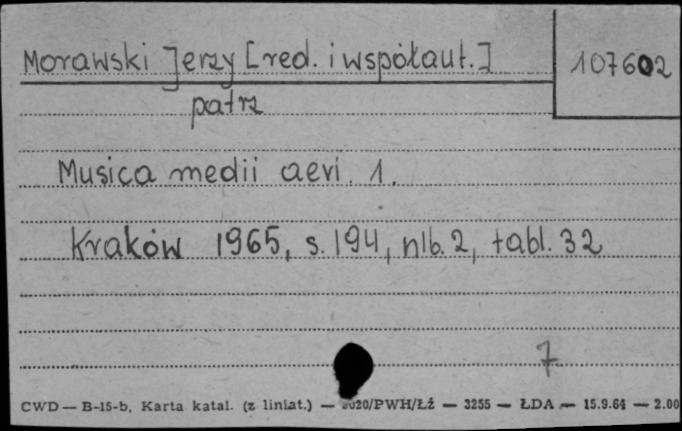 Morawski Jerzy [red. i współaut.] 107602
patrz
Musica medii aevi. 1.
Kraków 1965, s. 194, nlb. 2, tabl. 32
7
CWD — B-15-b, Karta katal. (z liniat.) — 3020/PWH/Łź — 3255 — ŁDA — 15.9.64 — 2.00